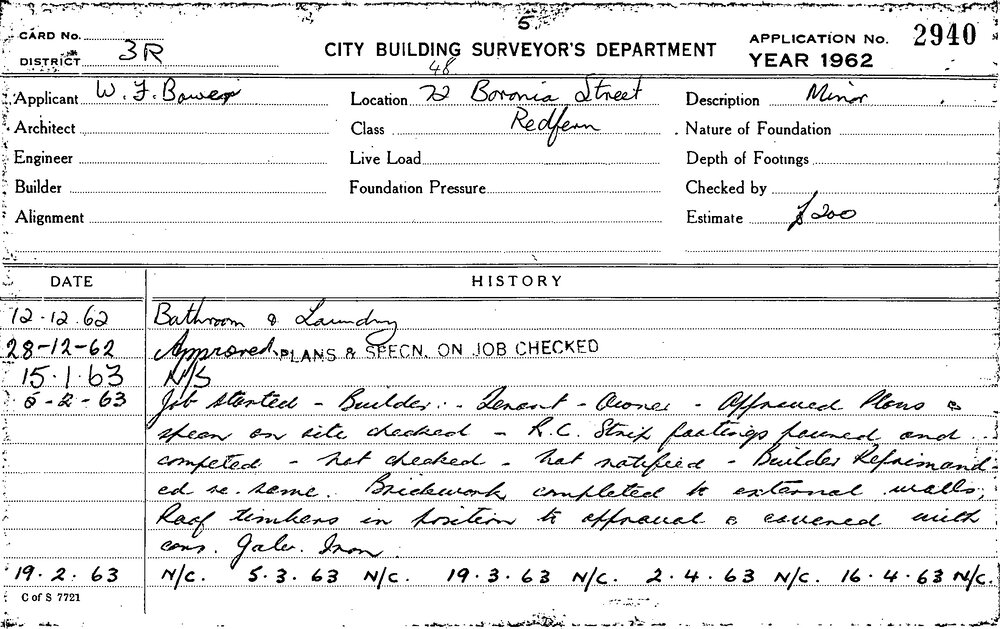 5
CARD No.
DISTRICT 3R
CITY BUILDING SURVEYOR'S DEPARTMENT
APPLICATION No. 2940
YEAR 1962
48
Applicant W. F. Bower Location 72 Boronia Street Description Minor
Architect Class Redfern Nature of Foundation
Engineer Live Load Depth of Footings
Builder Foundation Pressure Checked by
Alignment Estimate £200
DATE HISTORY
12.12.62 Bathroom & Laundry
28-12-62 Approved. PLANS & SPECN. ON JOB CHECKED
15.1.63 N/S
5-2-63 Job started - Builder :- Tenant - Owner - Approved Plans &
specn on site checked - R.C. Strip footings poured and
competed - not checked - not notified - Builder Reprimand-
ed re. same. Brickwork completed to external walls,
Roof timbers in position to approval & covered with
corr. Galv. Iron.
19.2.63 N/C. 5.3.63 N/C. 19.3.63 N/C. 2.4.63 N/C. 16.4.63 N/C.
C of S 7721